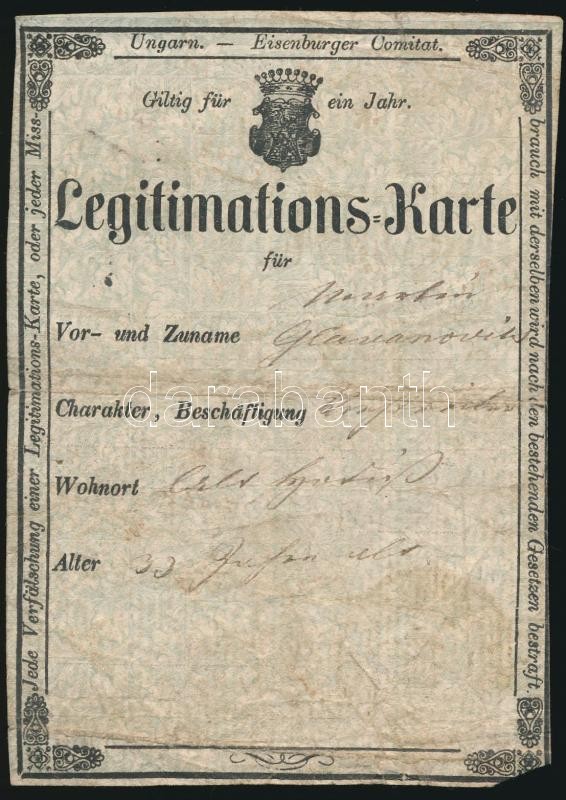 Ungarn. — Eisenburger Comitat.
Giltig für ein Jahr.
Legitimations-Karte
für
Vor- und Zuname Martin
Glavanovits
Charakter, Beschäftigung
Wohnort Alt
Alter 33 Jahre alt
Jede Verfälschung einer Legitimations-Karte, oder jeder Miss-
brauch mit derselben wird nach den bestehenden Gesetzen bestraft.
darabanth